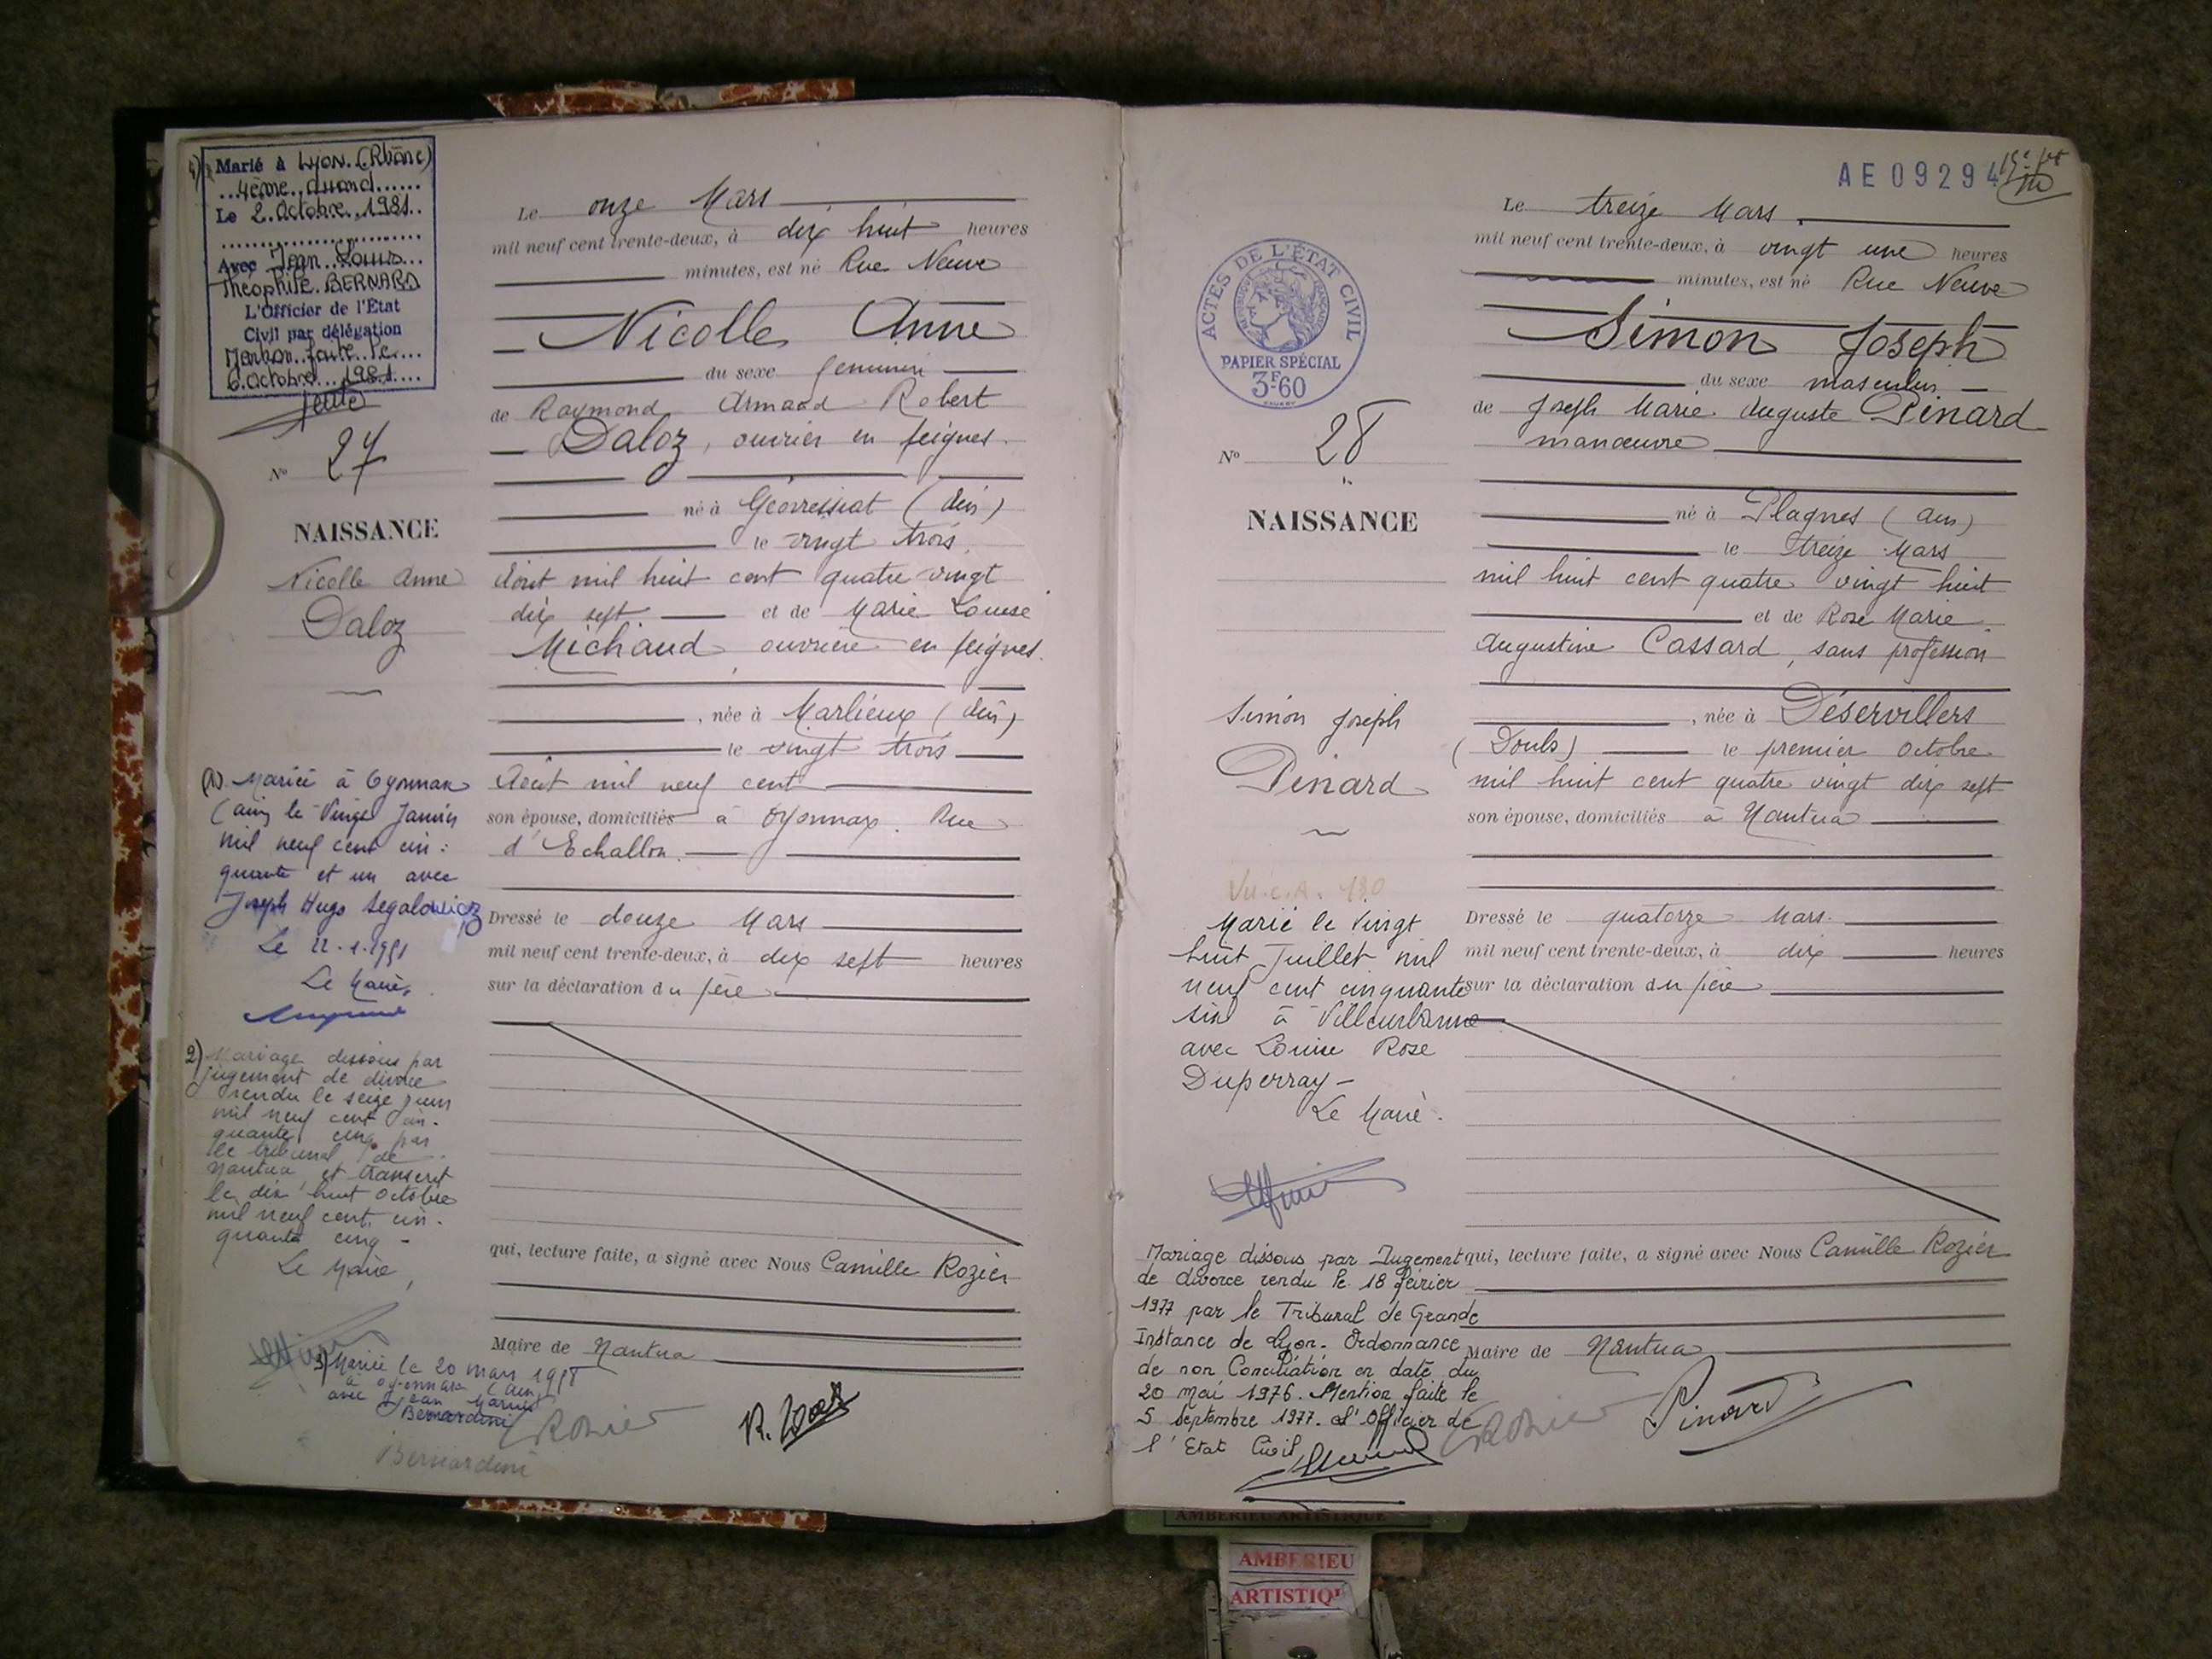 4) Marié à Lyon (Rhône)
4ème Arrond
Le 2 Octobre 1981
Avec Jean Louis
Théophile BERNARD
L'Officier de l'Etat
Civil par délégation
Mention faite le
6 Octobre 1981
N° 27
NAISSANCE
Nicolle Anne
Daloz
(1) Mariée à Oyonnax
(Ain) le Vingt Janvier
mil neuf cent cin-
quante et un avec
Joseph Hugo Segalowicz
Le 22-1-1951
Le Maire,
2) Mariage dissous par
jugement de divorce
rendu le seize juin
mil neuf cent cin-
quante cinq par
le tribunal de
Nantua et transcrit
le dix huit octobre
mil neuf cent cin-
quante cinq -
Le Maire,
3) Mariée le 20 mars 1958
à Oyonnax (Ain)
avec Jean
Bernardini
Bernardini
Le onze Mars
mil neuf cent trente-deux, à dix huit heures
minutes, est né Rue Neuve
Nicolle Anne
du sexe feminin
de Raymond Armand Robert
Daloz, ouvrier en peignes.
né à Géovreissiat (Ain)
le vingt trois
Août mil huit cent quatre vingt
dix sept et de Marie Louise
Michaud, ouvrière en peignes.
, née à Marlieux (Ain)
le vingt trois
Août mil neuf cent
son épouse, domiciliés à Oyonnax. Rue
d'Echallon.
Dressé le douze Mars
mil neuf cent trente-deux, à dix sept heures
sur la déclaration du père
qui, lecture faite, a signé avec Nous Camille Rozier
Maire de Nantua
CRozier
AE 09294
ACTES DE L'ÉTAT CIVIL
PAPIER SPÉCIAL
3F60
N° 28
NAISSANCE
Simon Joseph
Pinard
Marié le Vingt
huit Juillet mil
neuf cent cinquante
six à Villeurbanne
avec Louise Rose
Duperray -
Le Maire.
Mariage dissous par Jugement
de divorce rendu le 18 février
1977 par le Tribunal de Grande
Instance de Lyon. Ordonnance
de non Conciliation en date du
20 mai 1976. Mention faite le
5 Septembre 1977. L'Officier de
l'Etat Civil
Le treize Mars
mil neuf cent trente-deux, à vingt une heures
minutes, est né Rue Neuve
Simon Joseph
du sexe masculin
de Joseph Marie Auguste Pinard
manœuvre
né à Plagnes (Ain)
le treize Mars
mil huit cent quatre vingt huit
et de Rose Marie
Augustine Cassard, sans profession
, née à Déservillers
(Doubs) le premier octobre
mil huit cent quatre vingt dix sept
son épouse, domiciliés à Nantua
Dressé le quatorze Mars
mil neuf cent trente-deux, à dix heures
sur la déclaration du père
qui, lecture faite, a signé avec Nous Camille Rozier
Maire de Nantua
CRozier
Pinard
AMBERIEU ARTISTIQUE
AMBERIEU
ARTISTIQU